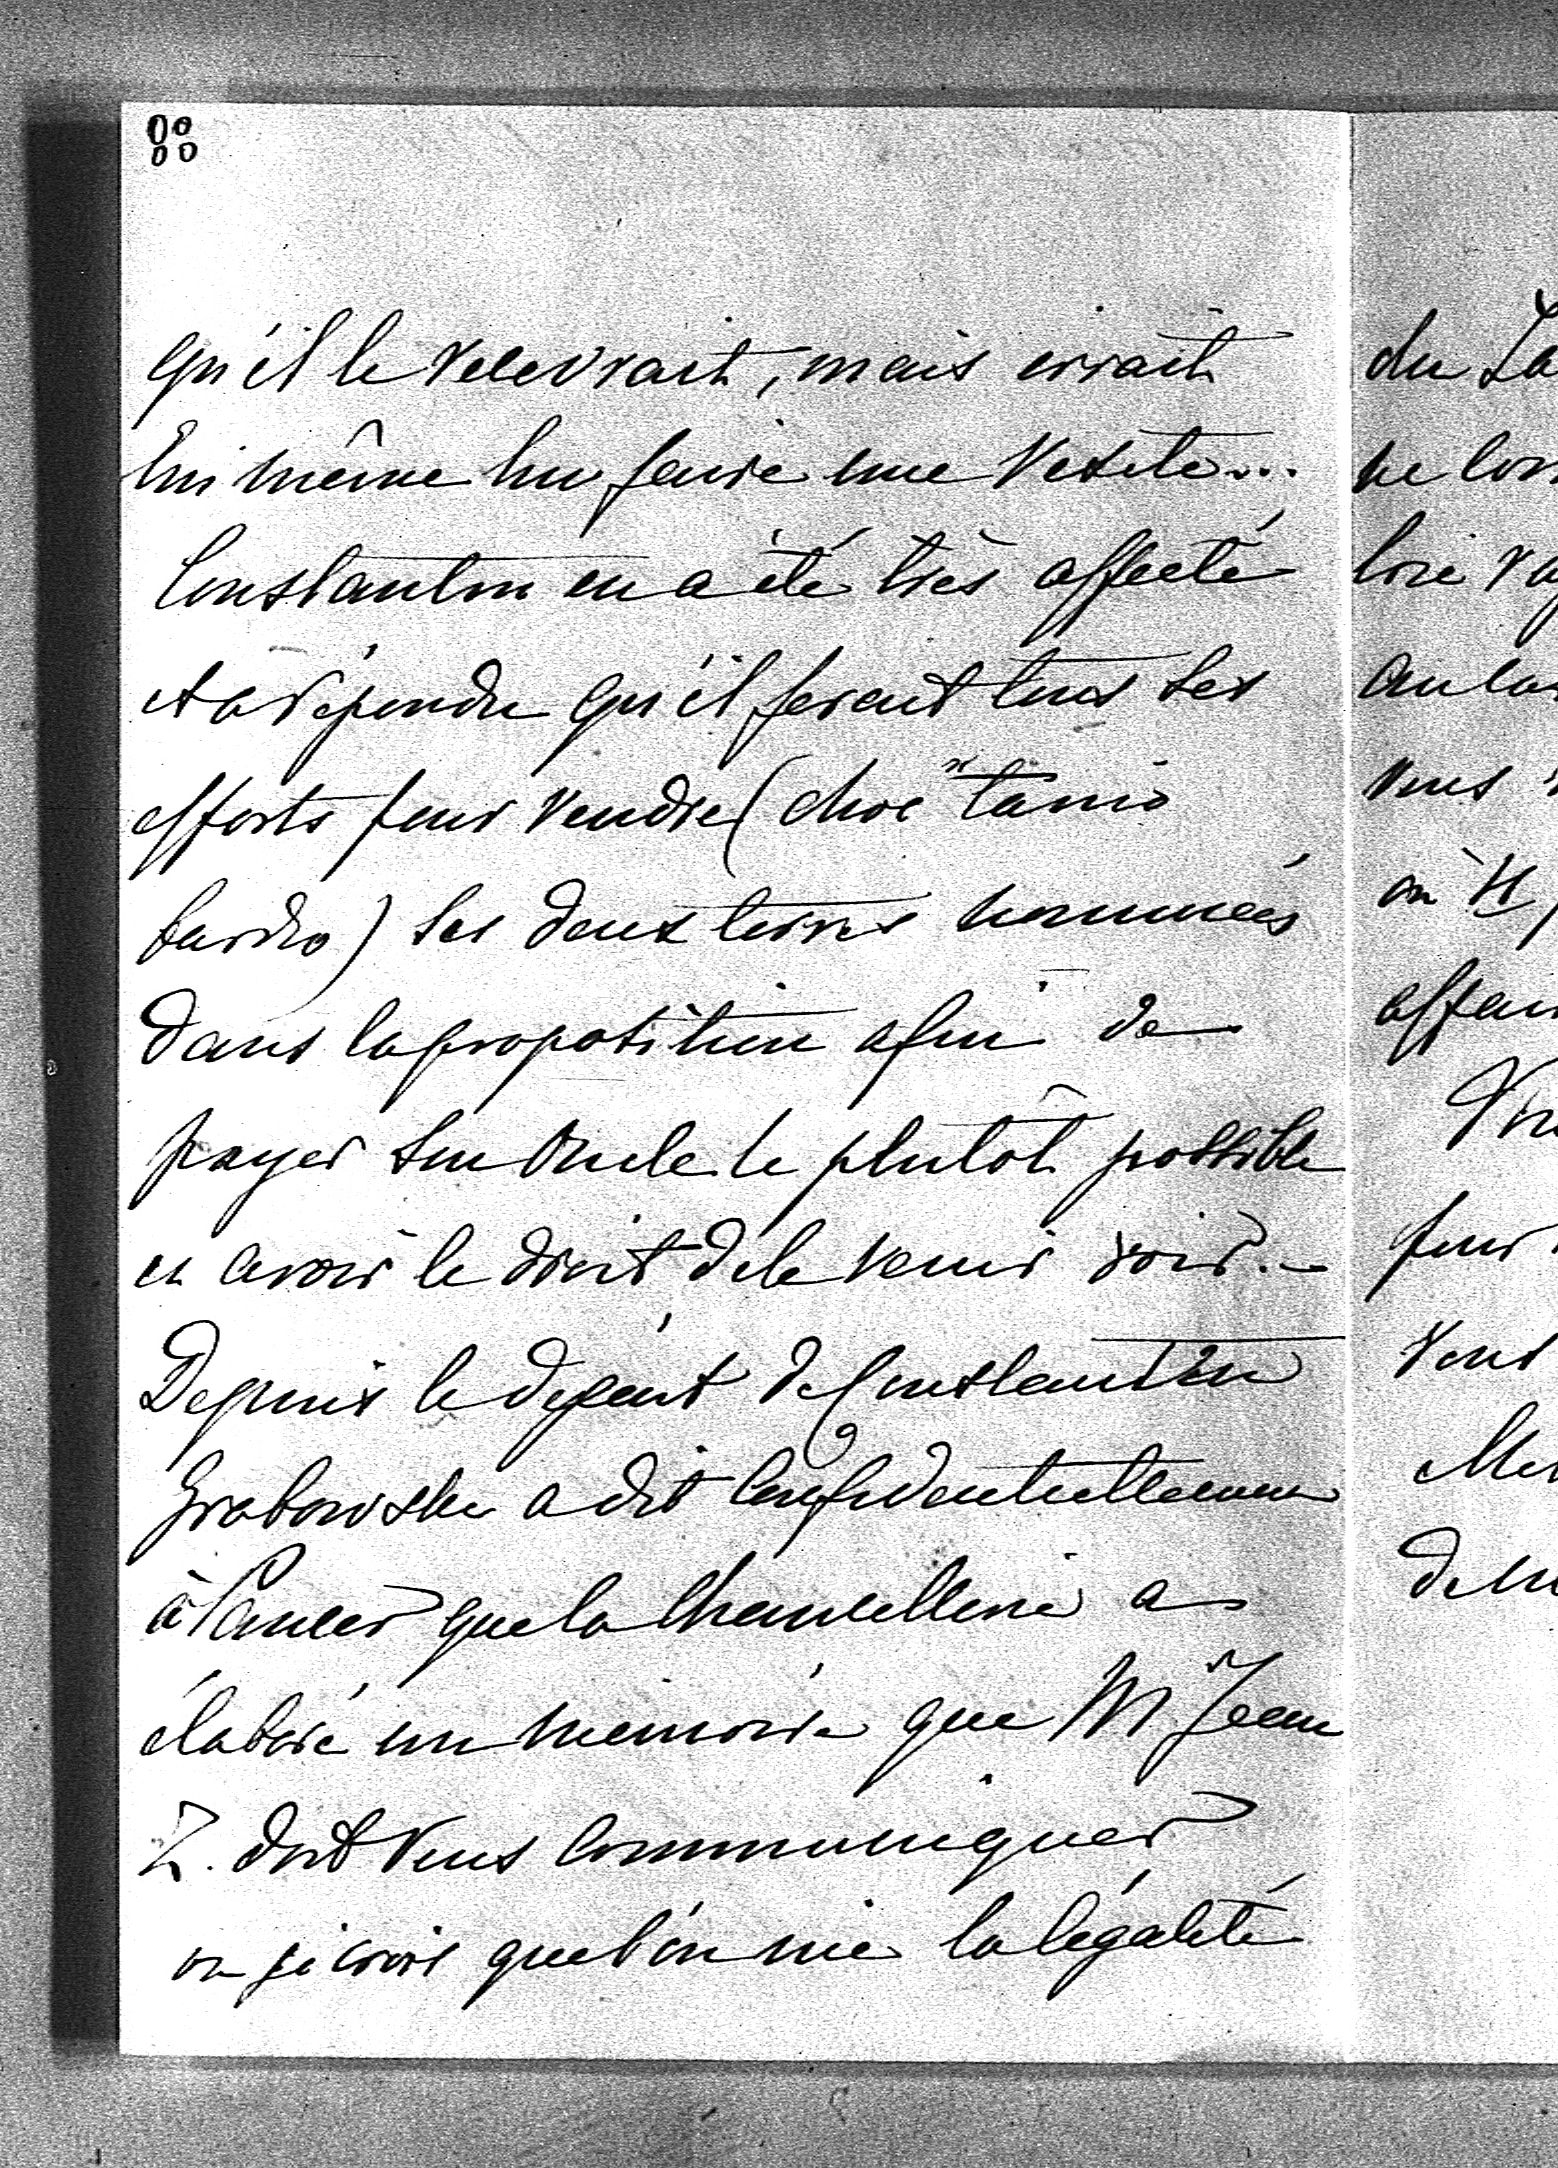 qu'il le recevrait, mais irrait
lui même lui faire une visite...
Constantin en a été très affecté
et a répondu qu'il ferait tous ses
efforts pour vendre (choć tanio
bardzo) ses deux terres nommées
dans la proposition afin de
payer son Oncle le plutôt possible
et avoir le droit de le venir voir.
Depuis le départ de Constantin
Grabowski a dit confidentiellement
à que la Chancellerie a
élaboré un mémoire que Mr Jean
Z. doit vous communiquer
où je crois que l'on nie la légalité
du
ne
vous
où
pour
vous